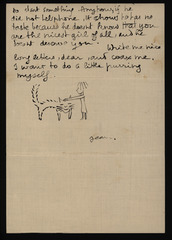 to dent something. Anyhow, if he
did not telephone. It shows he has no
taste because he doesn't know that you
are the nicest girl of all, and he
don't deserve you.
Write me nice
long letters, dear, and coax me.
I want to do a little purring
myself.